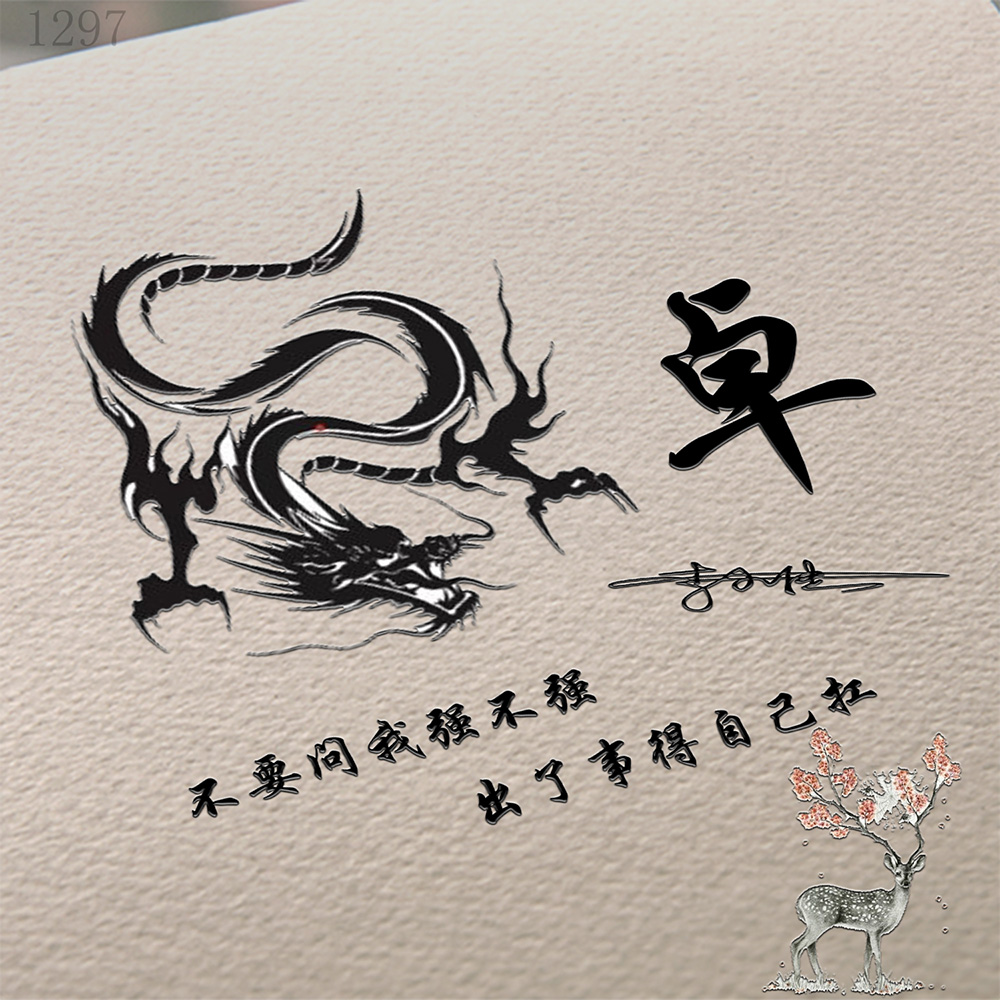 1297
卓
不要问我强不强
出了事得自己扛